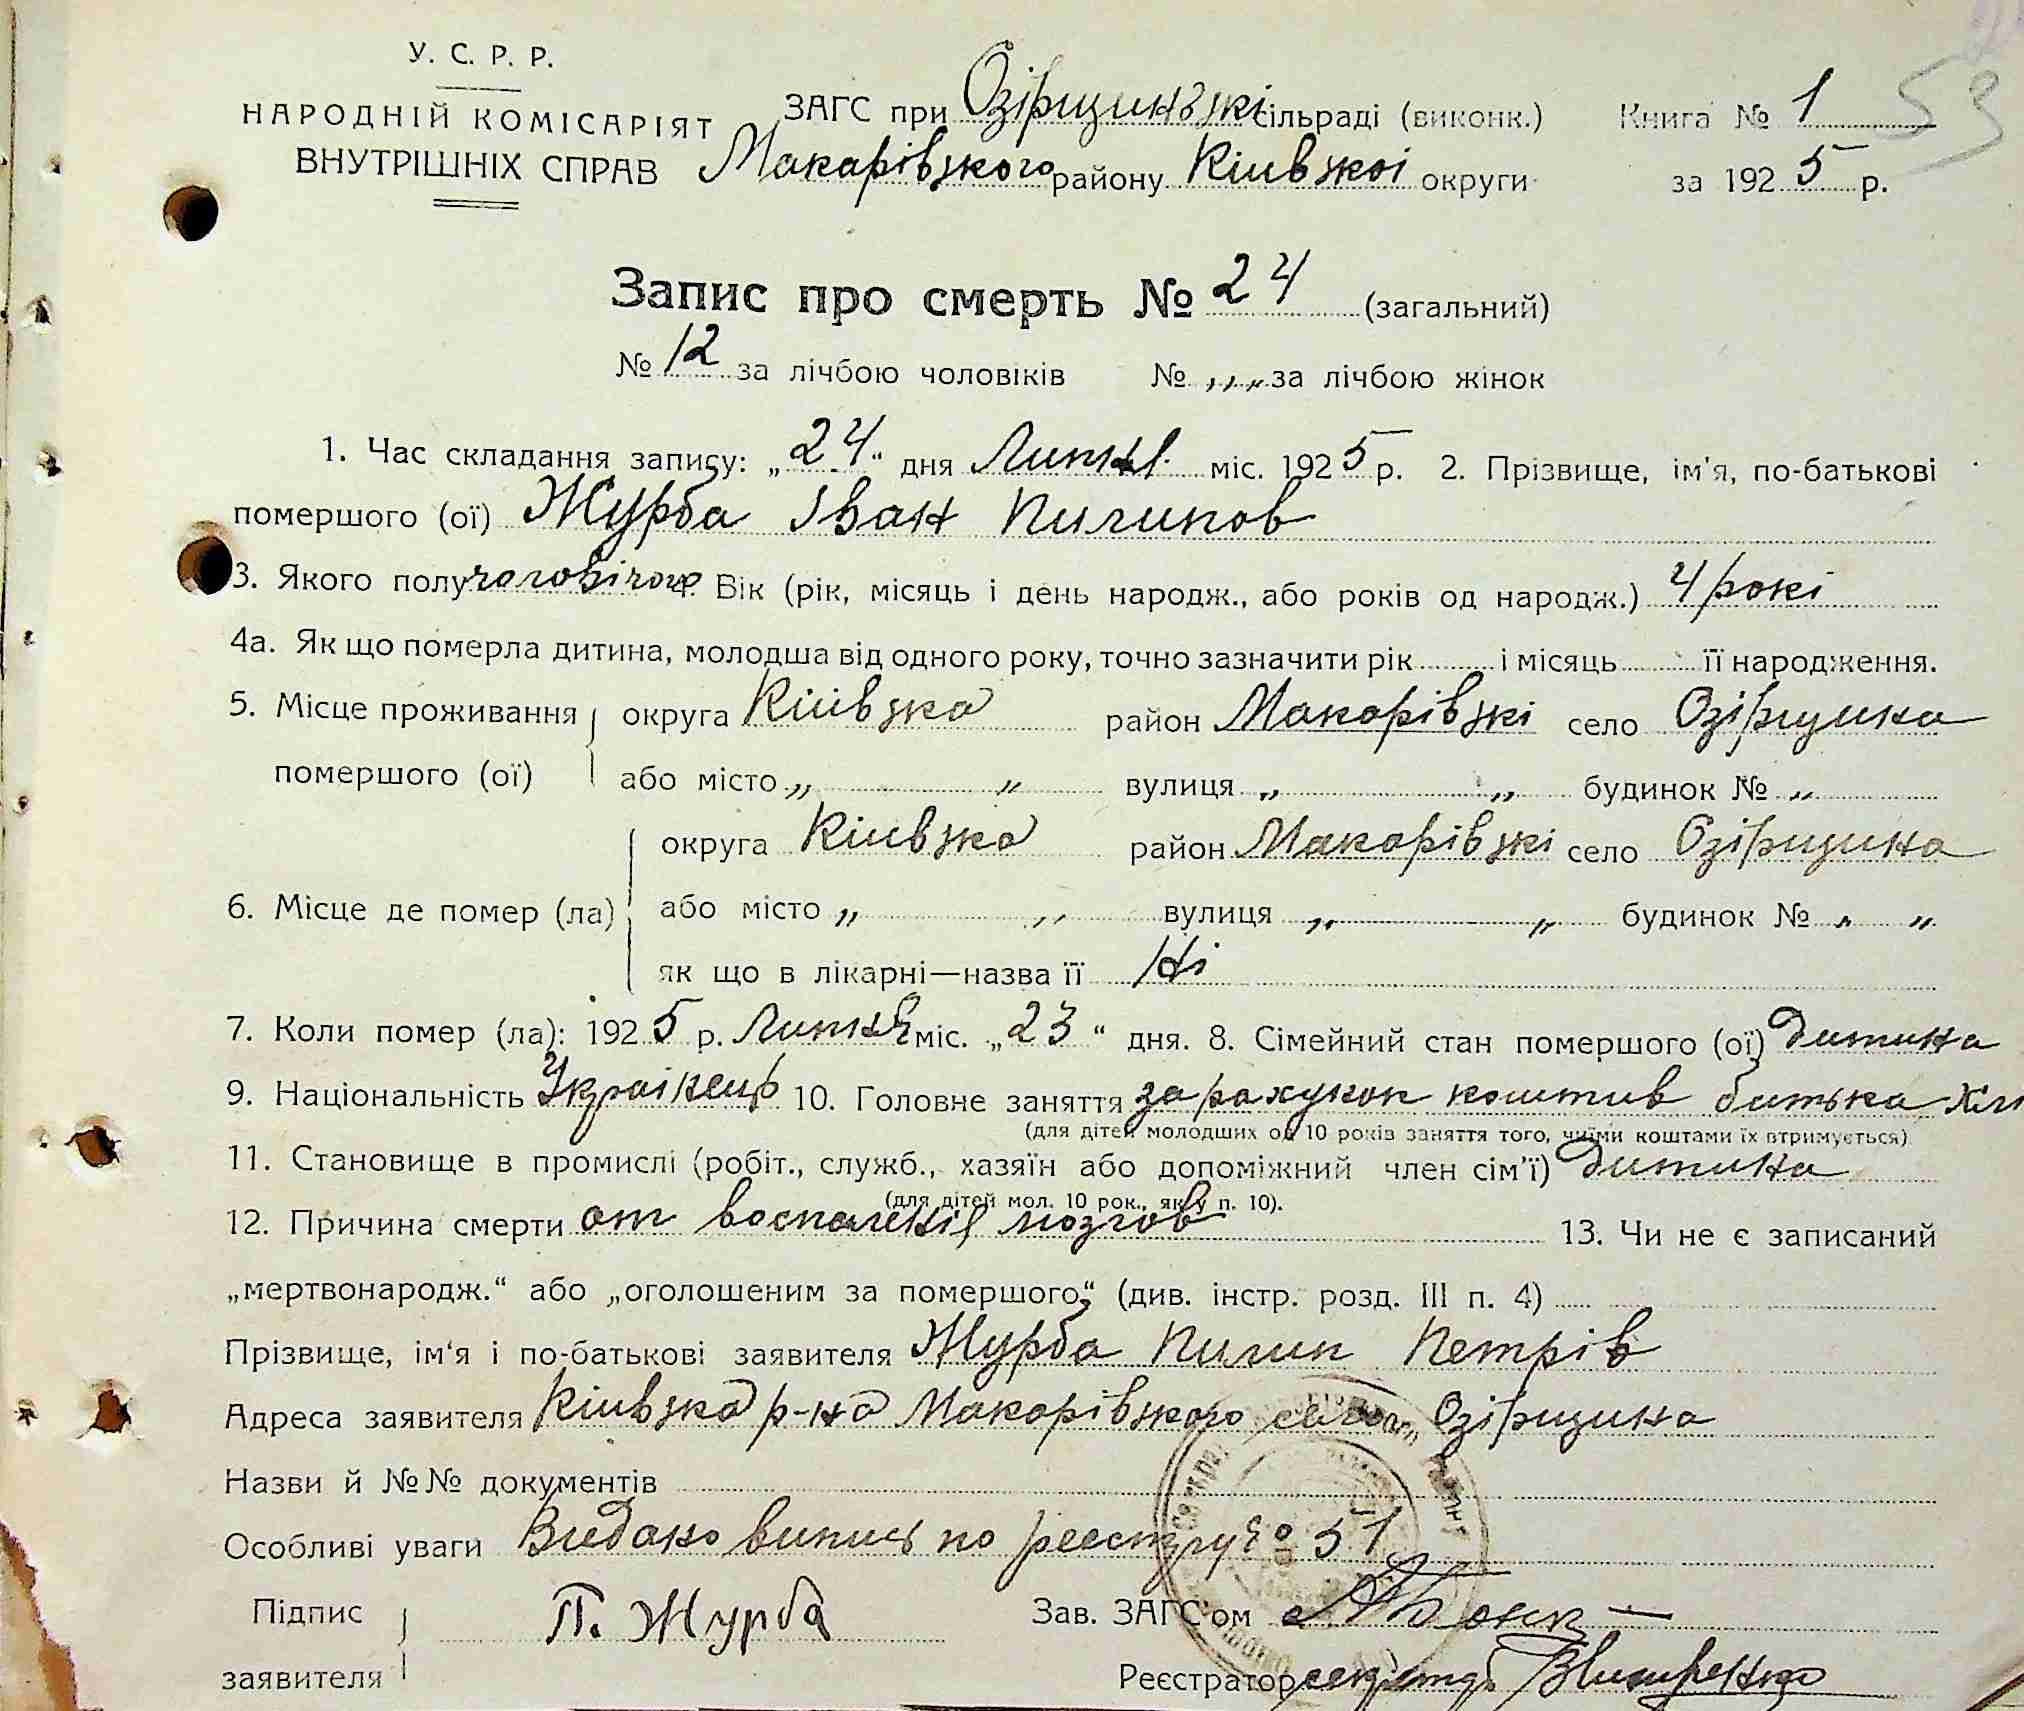 У. С. Р. Р.
НАРОДНІЙ КОМІСАРІЯТ
ВНУТРІШНІХ СПРАВ
ЗАГС при Озірщинзькі сільраді (виконк.)
Макарівзкого району Кіивзкоі округи
Книга № 1
за 1925 р.
53
Запис про смерть № 24 (загальний)
№ 12 за лічбою чоловіків № „ „ за лічбою жінок
1. Час складання запису: „24“ дня Липня міс. 1925 р. 2. Прізвище, ім'я, по-батькові
помершого (ої) Журба Іван Пилипов
3. Якого полу чоловічого 4. Вік (рік, місяць і день народж., або років од народж.) 4 рокі
4а. Як що померла дитина, молодша від одного року, точно зазначити рік і місяць її народження.
5. Місце проживання помершого (ої) округа Кіивзка район Макарівзкі село Озірщина
або місто „ „ вулиця „ „ будинок № „
6. Місце де помер (ла) округа Кіивзка район Макарівзкі село Озірщина
або місто „ „ вулиця „ „ будинок № „ „
як що в лікарні—назва її Ні
7. Коли помер (ла): 1925 р. Липня міс. „23“ дня. 8. Сімейний стан помершого (ої) дитина
9. Національність Украінець 10. Головне заняття за рахунок коштив батька
(для дітей молодших од 10 років заняття того, чиїми коштами їх втримується)
11. Становище в промислі (робіт., служб., хазяїн або допоміжний член сім'ї) дитина
(для дітей мол. 10 рок., як у п. 10).
12. Причина смерти от воспаления мозгов 13. Чи не є записаний
„мертвонародж.“ або „оголошеним за помершого“ (див. інстр. розд. III п. 4)
Прізвище, ім'я і по-батькові заявителя Журба Пилип Петрів
Адреса заявителя Кіивзка р-на Макарівзкого село Озірщина
Назви й №№ документів
Особливі уваги Видано випись по реестру № 51
Підпис заявителя П. Журба
Зав. ЗАГС'ом
Реєстратор секретарь